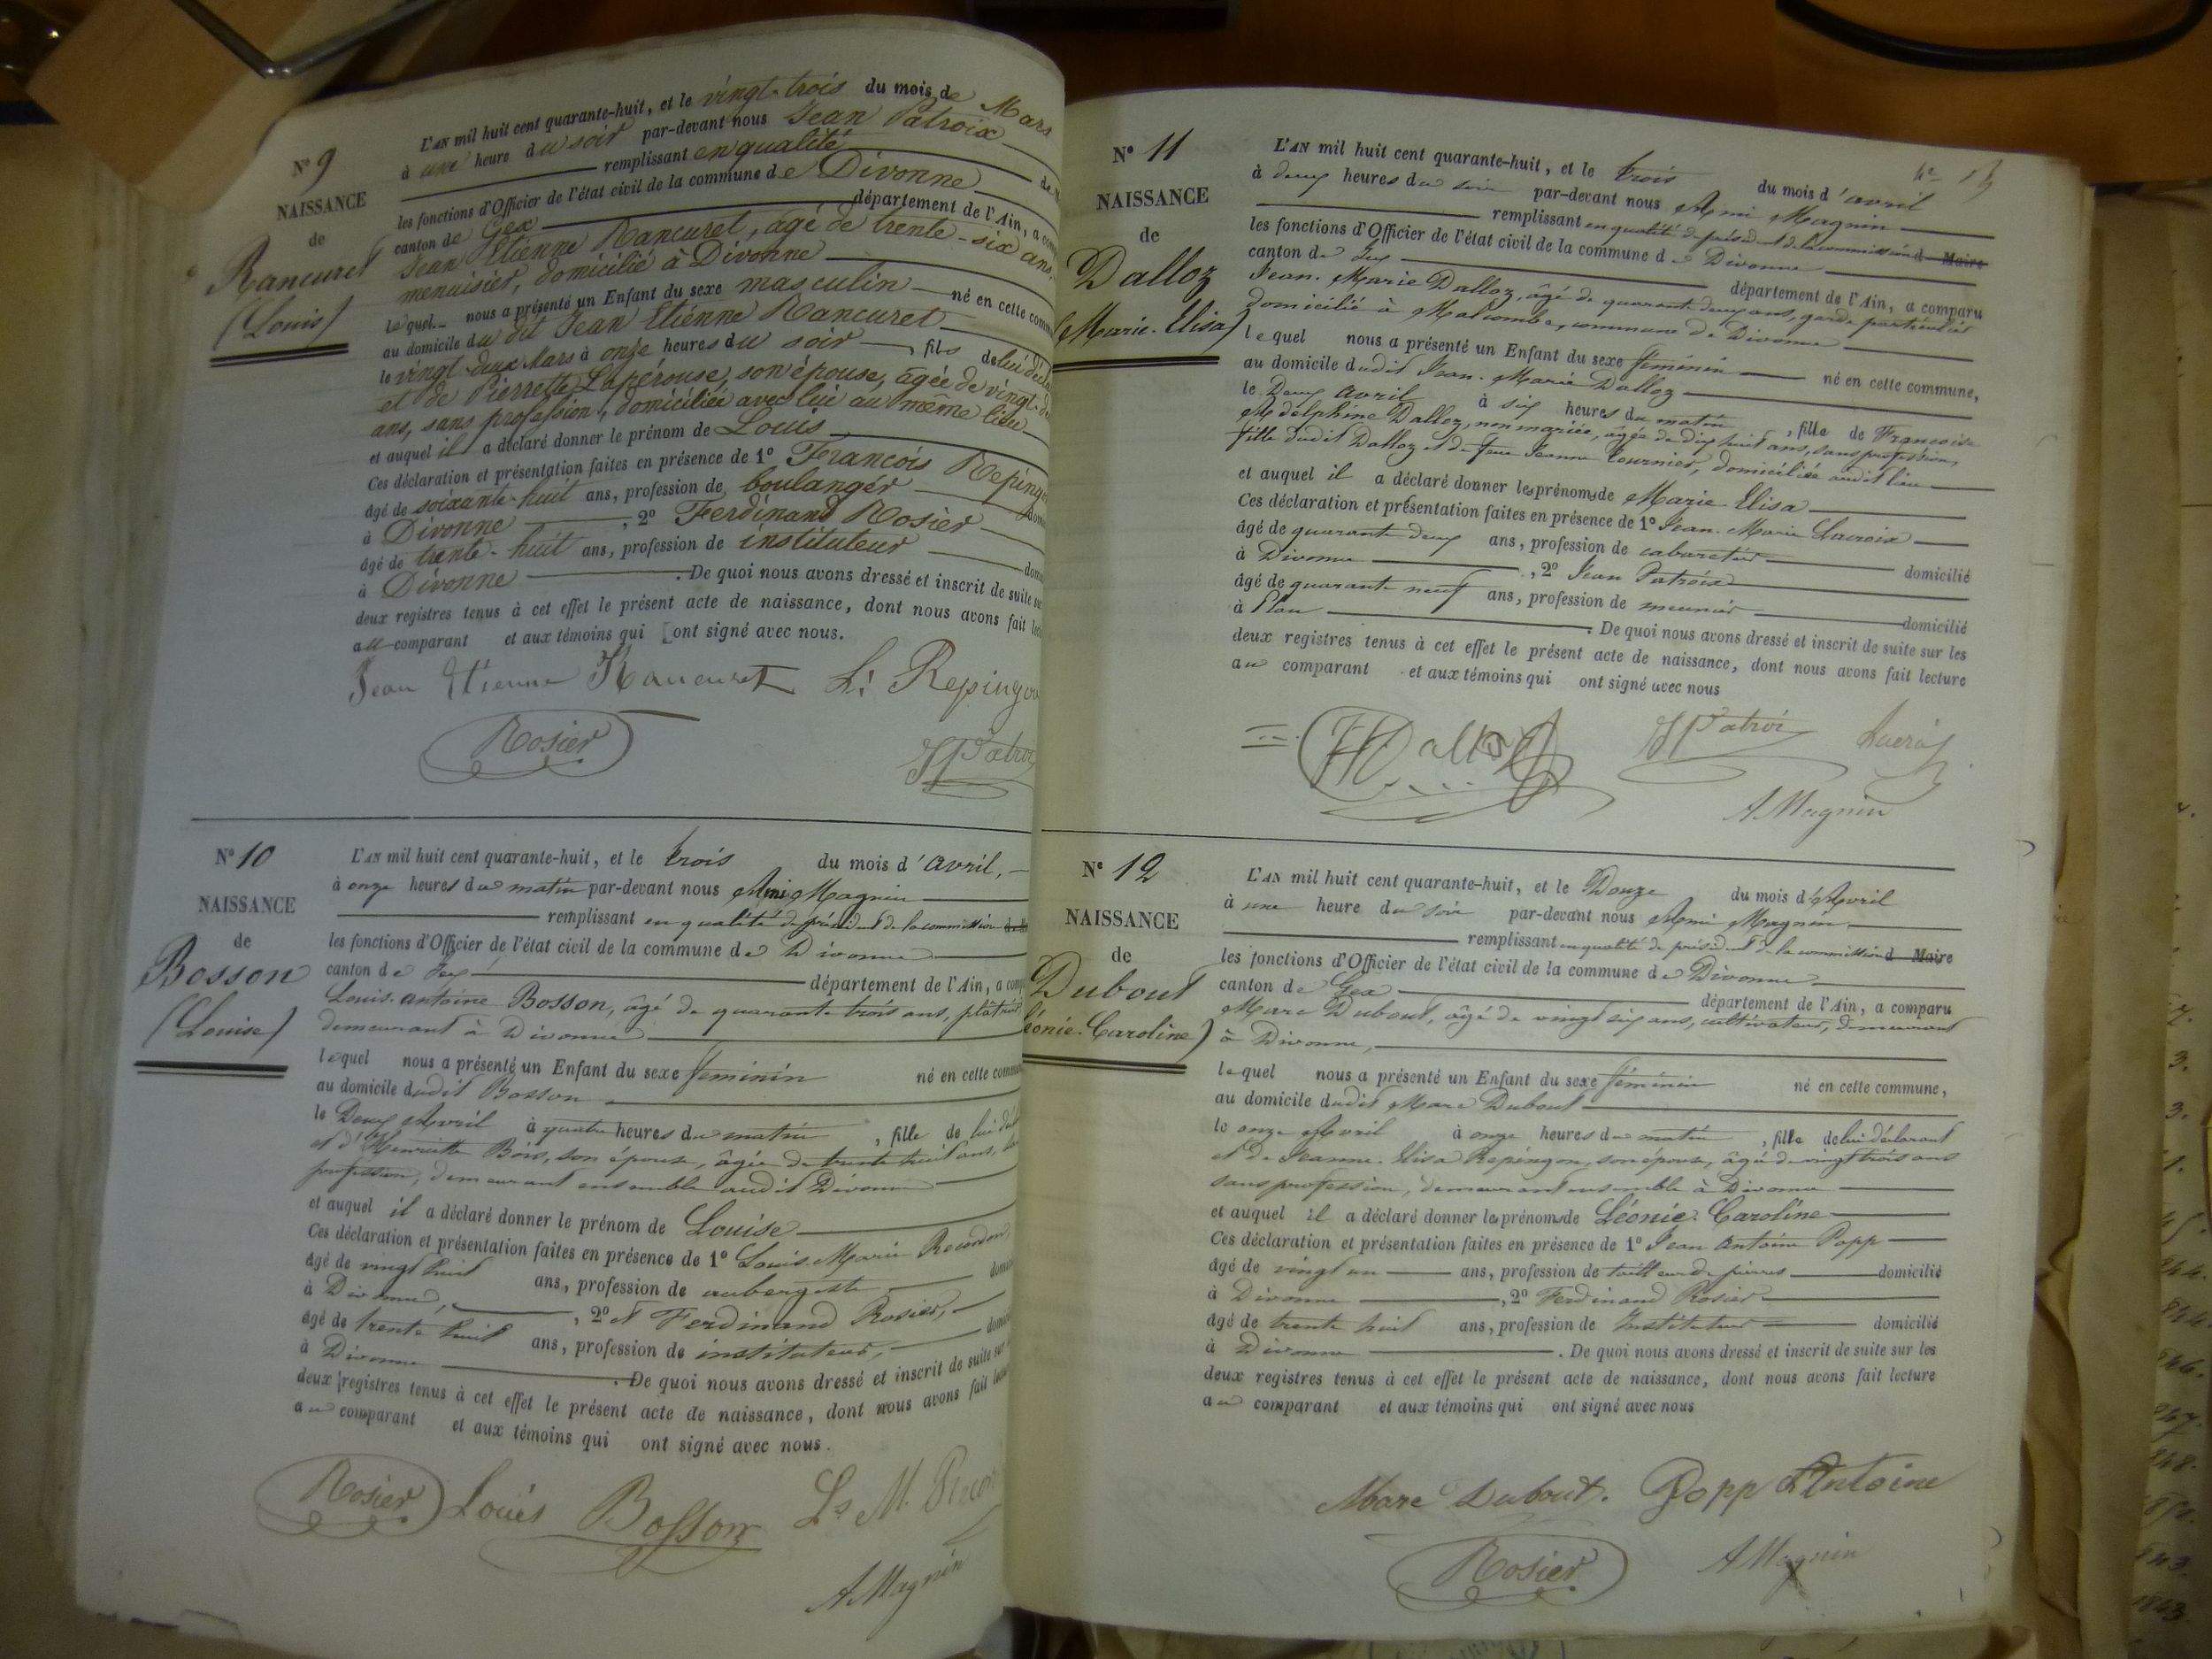 N° 9
NAISSANCE
de
Rancuret
(Louis)
L'AN mil huit cent quarante-huit, et le vingt-trois du mois de Mars
à une heure du soir par-devant nous Jean Patroix
remplissant en qualité de
les fonctions d'Officier de l'état civil de la commune de Divonne
canton de Gex département de l'Ain, a
Jean Etienne Rancuret, âgé de trente-six ans,
menuisier, domicilié à Divonne
lequel nous a présenté un Enfant du sexe masculin né en cette
au domicile du dit Jean Etienne Rancuret
le vingt-deux Mars à onze heures du soir, fils de lui
et de Pierrette Lapérouse, son épouse, âgée de vingt-
ans, sans profession, domiciliée avec lui au même lieu
et auquel il a déclaré donner le prénom de Louis
Ces déclaration et présentation faites en présence de 1° François
âgé de soixante-huit ans, profession de boulanger
à Divonne, 2° Ferdinand Rosier
âgé de trente-huit ans, profession de instituteur
à Divonne. De quoi nous avons dressé et inscrit de suite
deux registres tenus à cet effet le présent acte de naissance, dont nous avons fait
au comparant et aux témoins qui ont signé avec nous.
Jean Etienne Rancuret
Rosier
N° 10
NAISSANCE
de
Bosson
(Louise)
L'AN mil huit cent quarante-huit, et le trois du mois d'avril,
à onze heures du matin par-devant nous Ami Magnin
remplissant en qualité de président de la commission
les fonctions d'Officier de l'état civil de la commune de Divonne
canton de Gex département de l'Ain, a
Louis-antoine Bosson, âgé de quarante trois ans, plâtrier
demeurant à Divonne
lequel nous a présenté un Enfant du sexe féminin né en cette
au domicile dudit Bosson
le Deux Avril à quatre heures du matin, fille de lui
et d'Henriette Bois, son épouse, âgée de trente huit ans,
profession, demeurant ensemble audit Divonne
et auquel il a déclaré donner le prénom de Louise
Ces déclaration et présentation faites en présence de 1° Louis Marie
âgé de vingt huit ans, profession de aubergiste
à Divonne, 2° et Ferdinand Rosier,
âgé de trente huit ans, profession de instituteur,
à Divonne. De quoi nous avons dressé et inscrit de suite
deux registres tenus à cet effet le présent acte de naissance, dont nous avons fait
au comparant et aux témoins qui ont signé avec nous.
Rosier Louis Bosson
A Magnin
N° 11
NAISSANCE
de
Dalloz
(Marie-Elisa)
L'AN mil huit cent quarante-huit, et le trois du mois d'avril
à deux heures du soir par-devant nous Ami Magnin
remplissant en qualité de président de la commission d Maire
les fonctions d'Officier de l'état civil de la commune de Divonne
canton de Gex département de l'Ain, a comparu
Jean-Marie Dalloz, âgé de quarante deux ans, garde particulier
domicilié à Malcombe, commune de Divonne
lequel nous a présenté un Enfant du sexe féminin né en cette commune,
au domicile dudit Jean-Marie Dalloz
le Deux Avril à six heures du matin, fille de Françoise
Adelphine Dalloz, non mariée, âgée de dix huit ans, sans profession,
fille dudit Dalloz et de feue Jeanne Tournier, domiciliée audit lieu
et auquel il a déclaré donner les prénoms de Marie Elisa
Ces déclaration et présentation faites en présence de 1° Jean-Marie Lacroix
âgé de quarante deux ans, profession de cabaretier domicilié
à Divonne, 2° Jean Patroix
âgé de quarante neuf ans, profession de meunier domicilié
à Plan. De quoi nous avons dressé et inscrit de suite sur les
deux registres tenus à cet effet le présent acte de naissance, dont nous avons fait lecture
au comparant et aux témoins qui ont signé avec nous
A Magnin
N° 12
NAISSANCE
de
Dubout
Léonie-Caroline)
L'AN mil huit cent quarante-huit, et le Douze du mois d'Avril
à une heure du soir par-devant nous Ami Magnin
remplissant en qualité de président de la commission d Maire
les fonctions d'Officier de l'état civil de la commune de Divonne
canton de Gex département de l'Ain, a comparu
Marc Dubout, âgé de vingt six ans, cultivateur, demeurant
à Divonne,
lequel nous a présenté un Enfant du sexe féminin né en cette commune,
au domicile dudit Marc Dubout
le onze Avril à onze heures du matin, fille de lui déclarant
et de Jeanne-Elisa Repingon, son épouse, âgé de vingt trois ans
sans profession, demeurant ensemble à Divonne
et auquel il a déclaré donner les prénoms de Léonie-Caroline
Ces déclaration et présentation faites en présence de 1° Jean Antoine Popp
âgé de vingt un ans, profession de tailleur de pierres domicilié
à Divonne, 2° Ferdinand Rosier
âgé de trente huit ans, profession de Instituteur domicilié
à Divonne. De quoi nous avons dressé et inscrit de suite sur les
deux registres tenus à cet effet le présent acte de naissance, dont nous avons fait lecture
au comparant et aux témoins qui ont signé avec nous
Marc Dubout. Popp Antoine
Rosier A Magnin